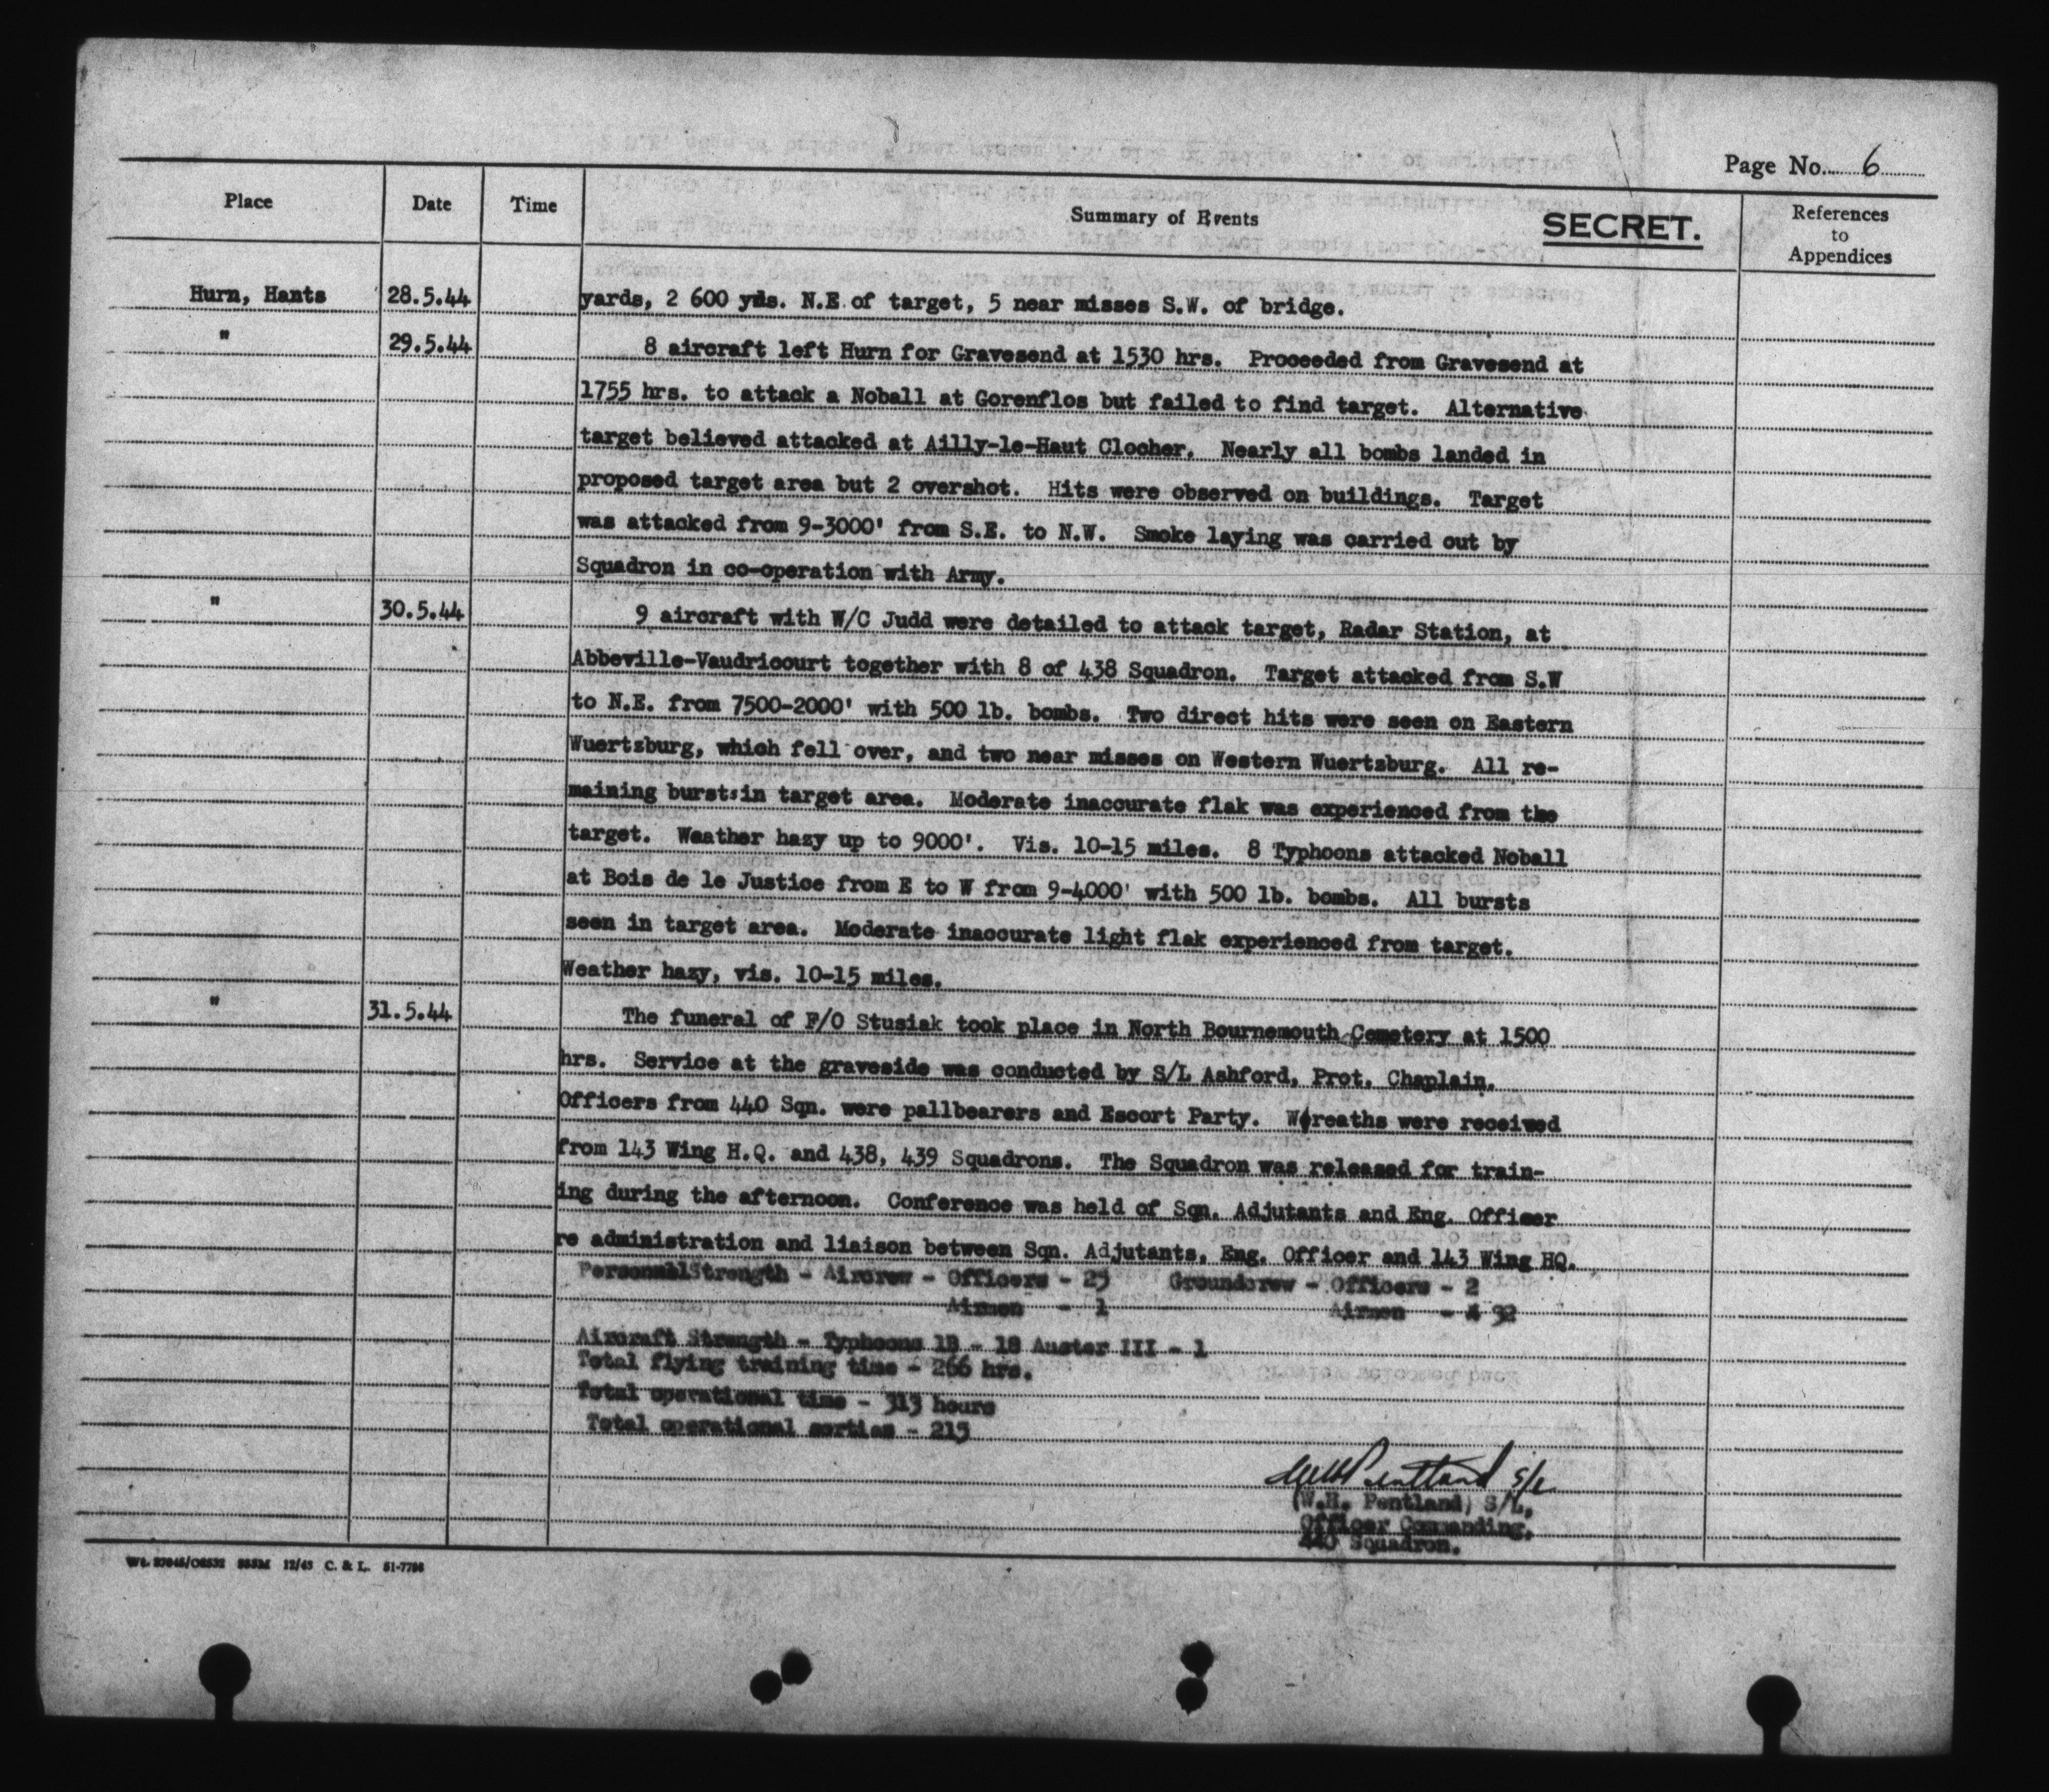 Page No. 6
Place Date Time Summary of Events SECRET. References to Appendices
Hurn, Hants 28.5.44 yards, 2 600 yds. N.E. of target, 5 near misses S.W. of bridge.
" 29.5.44 8 aircraft left Hurn for Gravesend at 1530 hrs. Proceeded from Gravesend at
1755 hrs. to attack a Noball at Gorenflos but failed to find target. Alternative
target believed attacked at Ailly-le-Haut Clocher. Nearly all bombs landed in
proposed target area but 2 overshot. Hits were observed on buildings. Target
was attacked from 9-3000' from S.E. to N.W. Smoke laying was carried out by
Squadron in co-operation with Army.
" 30.5.44 9 aircraft with W/C Judd were detailed to attack target, Radar Station, at
Abbeville-Vaudricourt together with 8 of 438 Squadron. Target attacked from S.W
to N.E. from 7500-2000' with 500 lb. bombs. Two direct hits were seen on Eastern
Wuertzburg, which fell over, and two near misses on Western Wuertzburg. All re-
maining bursts in target area. Moderate inaccurate flak was experienced from the
target. Weather hazy up to 9000'. Vis. 10-15 miles. 8 Typhoons attacked Noball
at Bois de le Justice from E to W from 9-4000' with 500 lb. bombs. All bursts
seen in target area. Moderate inaccurate light flak experienced from target.
Weather hazy, vis. 10-15 miles.
" 31.5.44 The funeral of F/O Stusiak took place in North Bournemouth Cemetery at 1500
hrs. Service at the graveside was conducted by S/L Ashford, Prot. Chaplain.
Officers from 440 Sqn. were pallbearers and Escort Party. Wreaths were received
from 143 Wing H.Q. and 438, 439 Squadrons. The Squadron was released for train-
ing during the afternoon. Conference was held of Sqn. Adjutants and Eng. Officer
re administration and liaison between Sqn. Adjutants, Eng. Officer and 143 Wing HQ.
Strength - Aircrew - Officers - 25 Groundcrew - Officers - 2
Airmen - 1 Airmen - 92
Aircraft Strength - Typhoons 1B - 18 Auster III - 1
Total flying training time - 266 hrs.
Total operational time - 313 hours
Total operational sorties - 215
Pentland S/L
(W.H. Pentland) S/L,
Officer Commanding,
440 Squadron.
12/43 C. & L. 51-7798